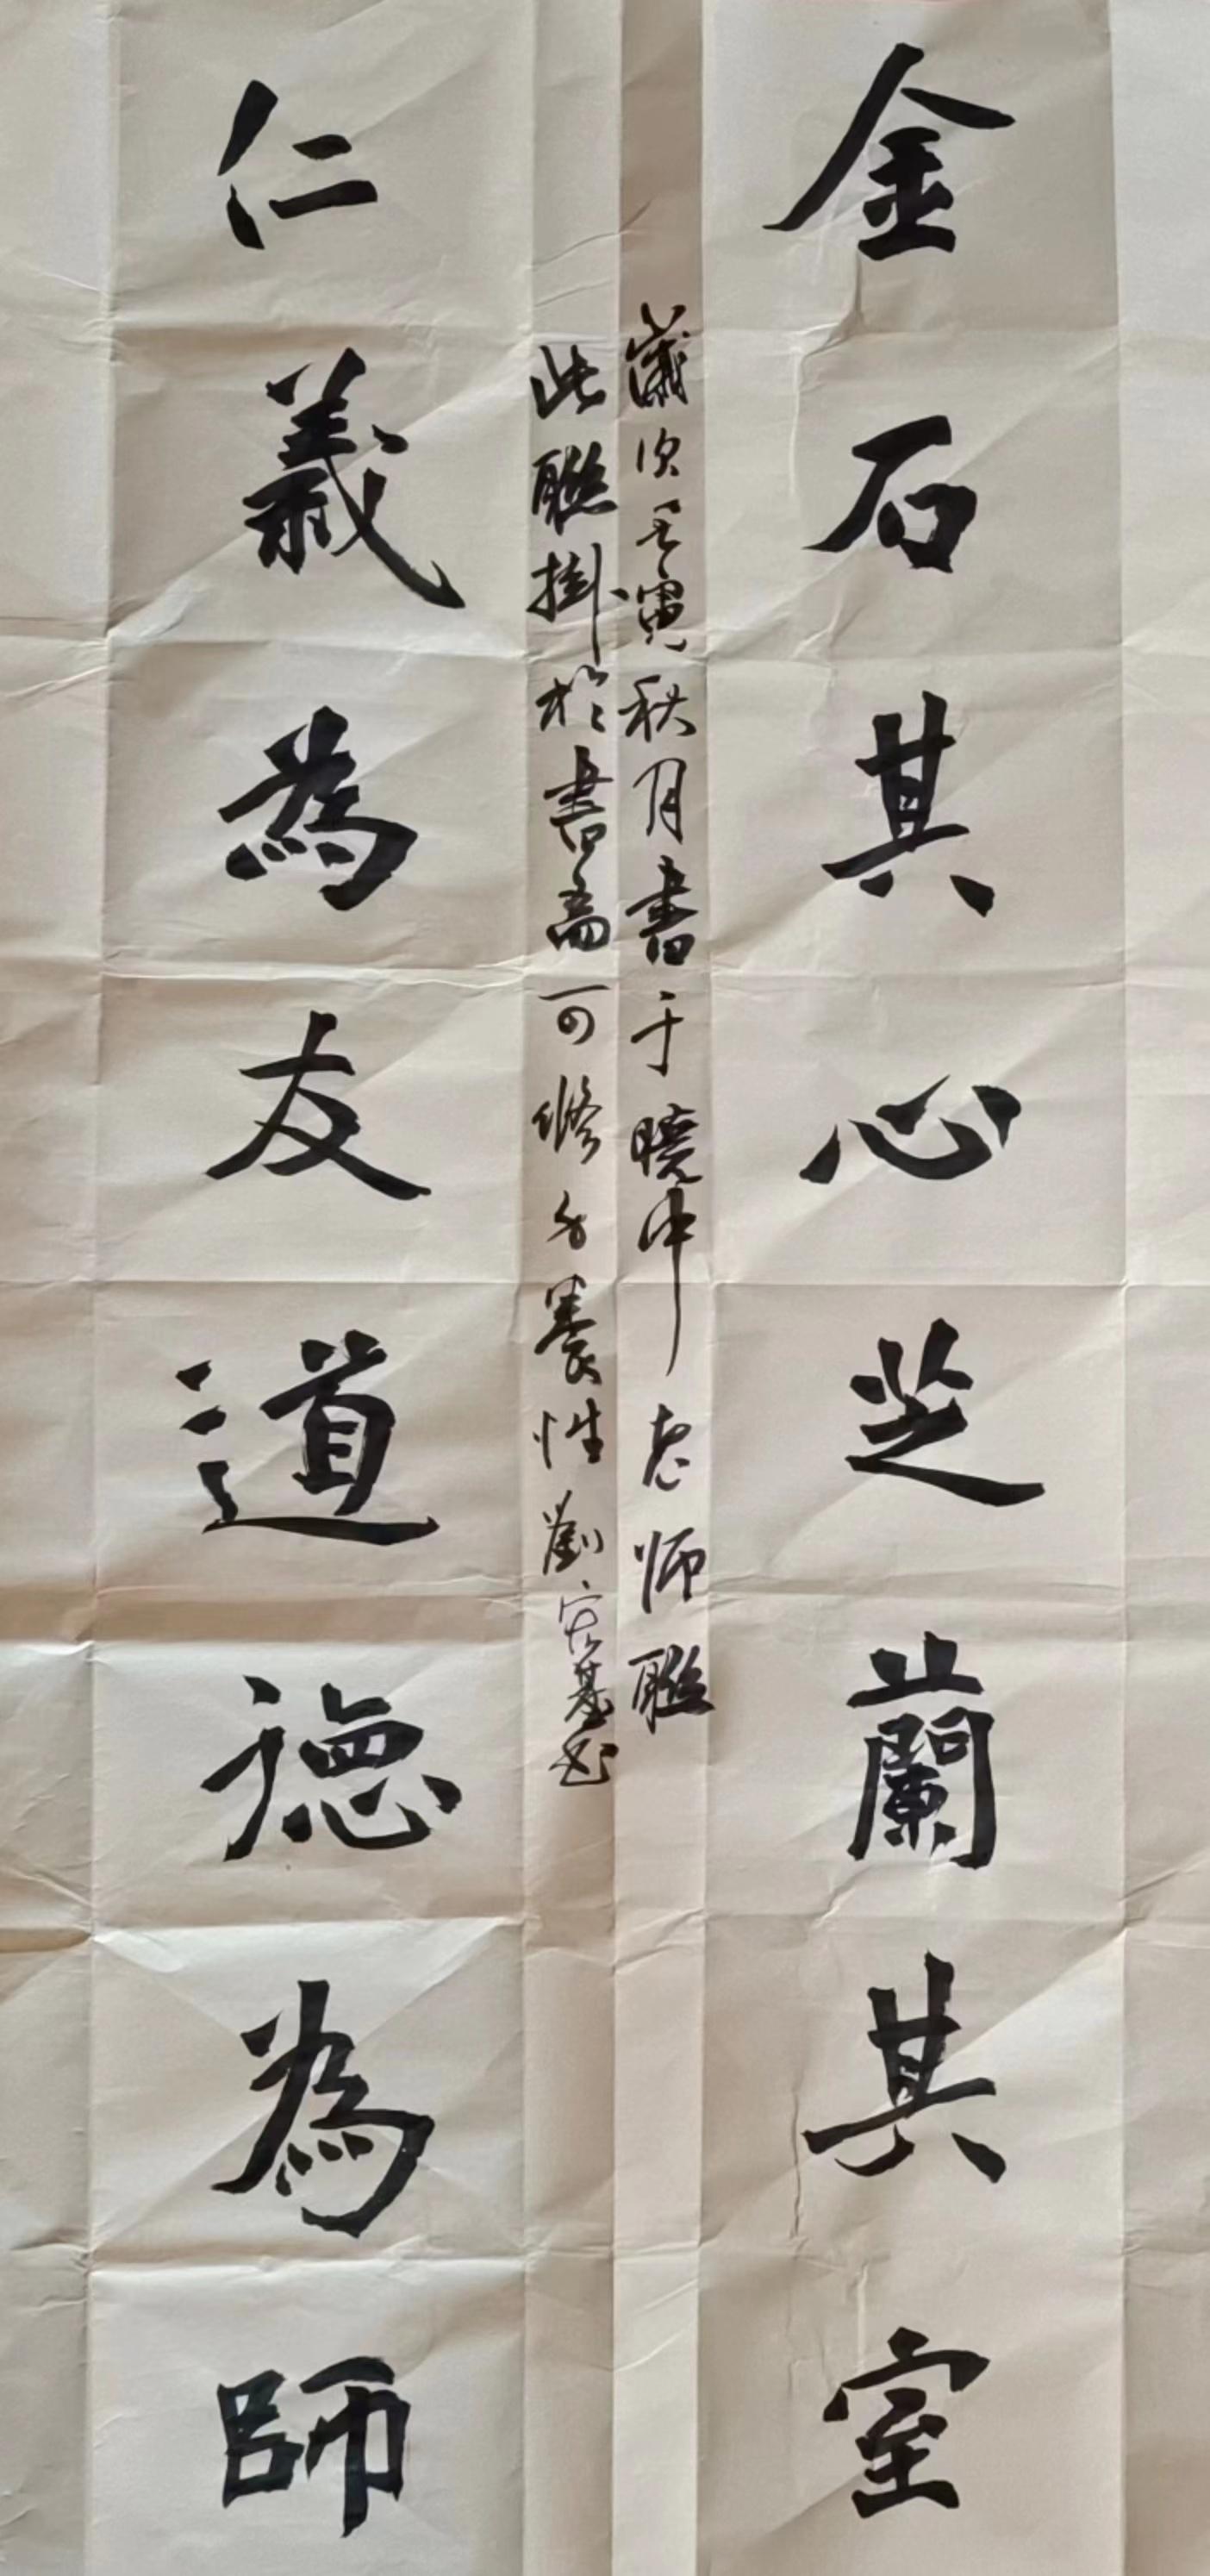 金石其心芝蘭其室
歲次壬寅秋月書于曉中老师聯
此聯掛於書斋可修身養性劉宏基书
仁義為友道德為師